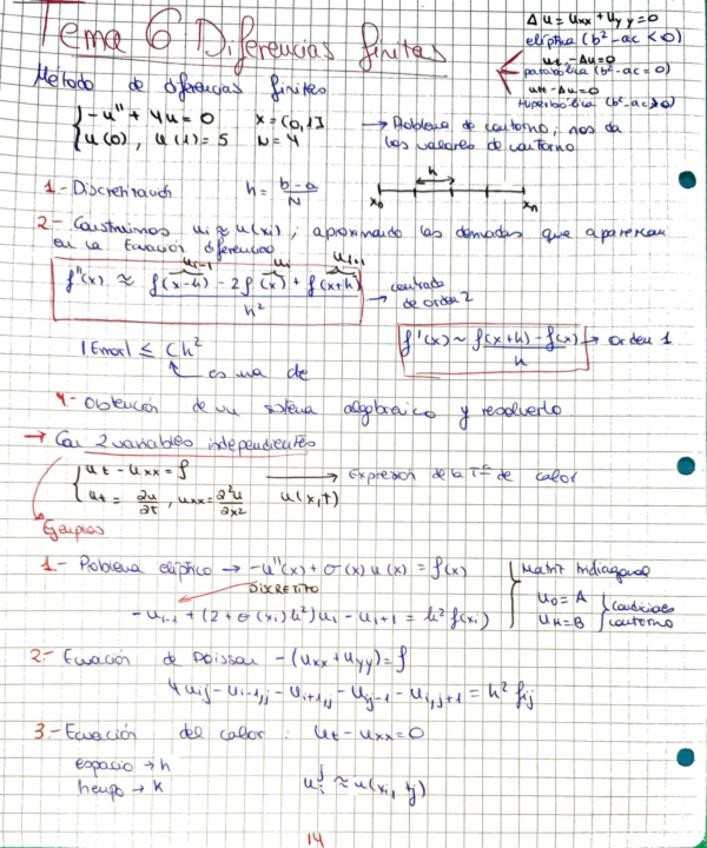 Tema 6 Diferencias finitas
Δu = uxx + uyy = 0
elíptica (b² - ac < 0)
ut - Δu = 0
parabólica (b² - ac = 0)
utt - Δu = 0
Hiperbólica (b² - ac > 0)
Método de diferencias finitas
{ -u'' + 4u = 0   x = [0,1]
{ u(0), u(1) = 5   N = 4
→ Problema de contorno; nos da
los valores de contorno
1.- Discretización   h = (b-a)/N
h
x0   xn
2- Construimos ui ≈ u(xi), aproximando las derivadas que aparezcan
en la Ecuación diferencial
ui-1   ui   ui+1
f''(x) ≈ (f(x-h) - 2f(x) + f(x+h))/h²
→ centrada
de orden 2
|Error| ≤ Ch²
es una cte
f'(x) ~ (f(x+h) - f(x))/h → orden 1
4.- Obtención de un sistema algebraico y resolverlo
→ Con 2 variables independientes
{ ut - uxx = f
{ ut = ∂u/∂t, uxx = ∂²u/∂x²
→ Expresión de la Tª de calor
u(x,t)
Ejemplos
1.- Problema elíptico → -u''(x) + σ(x)u(x) = f(x)
DISCRETIZO
-ui-1 + (2 + σ(xi)h²)ui - ui+1 = h² f(xi)
Matriz tridiagonal
u0 = A
uN = B
} condiciones
contorno
2.- Ecuación de Poisson -(uxx + uyy) = f
4uij - ui-1,j - ui+1,j - uij-1 - ui,j+1 = h² fij
3.- Ecuación del calor: ut - uxx = 0
espacio → h
tiempo → k
uij ≈ u(xi, tj)
14